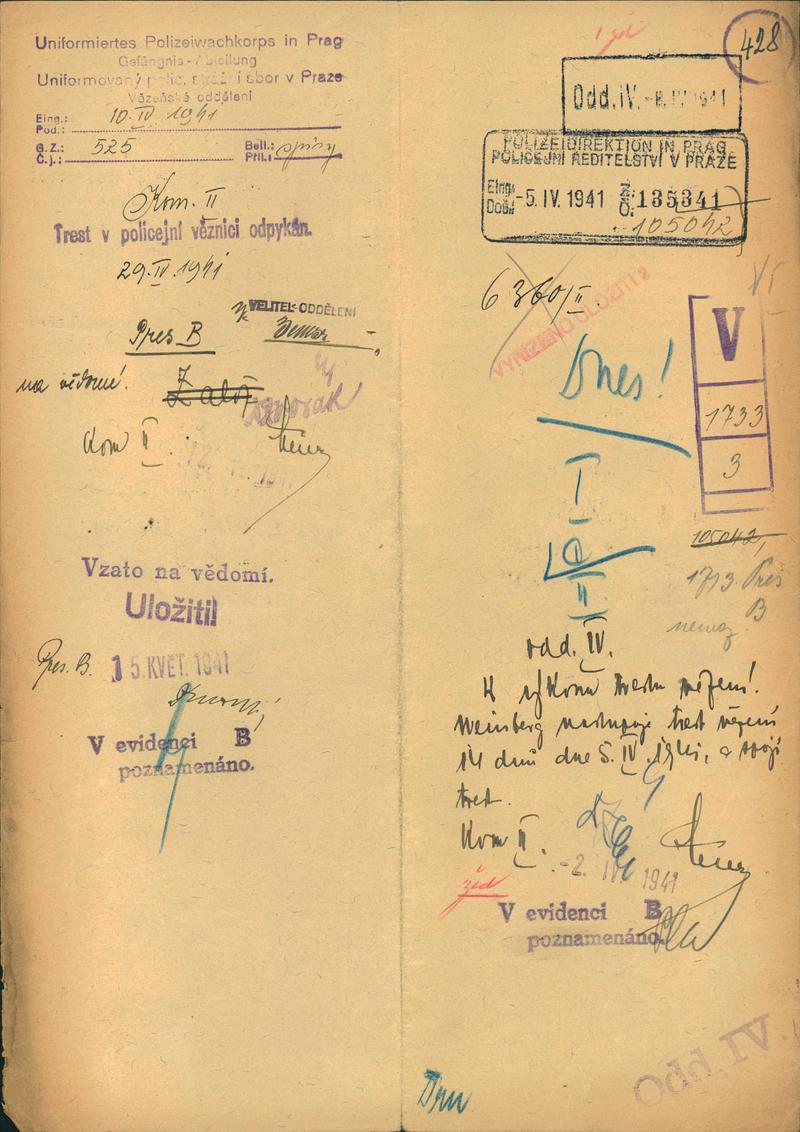 Uniformiertes Polizeiwachkorps in Prag
Gefängnis-Abteilung
Uniformovaný polic. strážní sbor v Praze
Vězeňské oddělení
Eing.:
Pod.: 10.IV 1941
G. Z.:
Č.j.: 525
Beil.:
Příl.: spisy
Kom. II
Trest v policejní věznici odpykán.
29.IV.1941
VELITEL ODDĚLENÍ
Pres B
na vědomí.
Založ
Kom II.
Vzato na vědomí.
Uložiti!
Pres. B. 15. KVĚT. 1941
V evidenci B
poznamenáno.
428
Odd. IV.
POLIZEIDIREKTION IN PRAG
POLICEJNÍ ŘEDITELSTVÍ V PRAZE
Eing.
Došlo -5. IV 1941
135341
105042
6360/II.
VYŘÍZENO ULOŽITI
Dnes!
V
1733
3
105042,
1713 Pres
B
odd. IV.
K výkonu trestu vězení!
Weinberg nastupuje trest vězení
14 dnů dne 5. IV. 1941, a svojí
trest.
Kom II.
-2. 1941
žid
V evidenci B
poznamenáno.
Odd. IV.